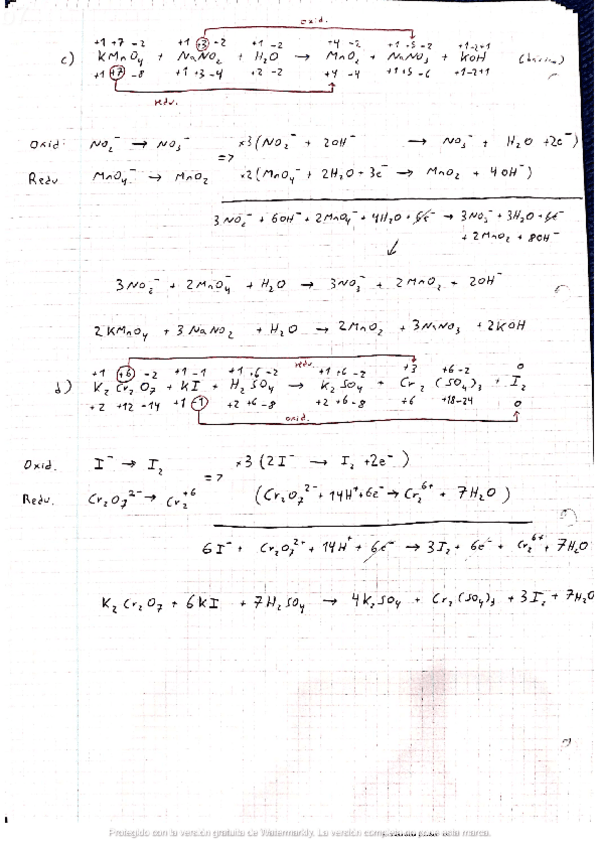 oxid.
+1 +7 -2 +1 +3 -2 +1 -2 +4 -2 +1 +5 -2 +1 -2 +1
c) KMnO₄ + NaNO₂ + H₂O → MnO₂ + NaNO₃ + KOH
+1 +7 -8 +1 +3 -4 +2 -2 +4 -4 +1 +5 -6 +1 -2 +1
redu.
Oxid: NO₂⁻ → NO₃⁻ => ×3 (NO₂⁻ + 2OH⁻ → NO₃⁻ + H₂O + 2e⁻)
Redu MnO₄⁻ → MnO₂ ×2 (MnO₄⁻ + 2H₂O + 3e⁻ → MnO₂ + 4OH⁻)
3NO₂⁻ + 6OH⁻ + 2MnO₄⁻ + 4H₂O + 6e⁻ → 3NO₃⁻ + 3H₂O + 6e⁻
+ 2MnO₂ + 8OH⁻
3NO₂⁻ + 2MnO₄⁻ + H₂O → 3NO₃⁻ + 2MnO₂ + 2OH⁻
2KMnO₄ + 3NaNO₂ + H₂O → 2MnO₂ + 3NaNO₃ + 2KOH
redu.
+1 +6 -2 +1 -1 +1 +6 -2 +1 +6 -2 +3 +6 -2 0
d) K₂Cr₂O₇ + KI + H₂SO₄ → K₂SO₄ + Cr₂(SO₄)₃ + I₂
+2 +12 -14 +1 -1 +2 +6 -8 +2 +6 -8 +6 +18 -24 0
oxid.
Oxid. I⁻ → I₂ => ×3 (2I⁻ → I₂ + 2e⁻)
Redu. Cr₂O₇²⁻ → Cr₂⁺⁶ (Cr₂O₇²⁻ + 14H⁺ + 6e⁻ → Cr₂⁶⁺ + 7H₂O)
6I⁻ + Cr₂O₇²⁺ + 14H⁺ + 6e⁻ → 3I₂ + 6e⁻ + Cr₂⁶⁺ + 7H₂O
K₂Cr₂O₇ + 6KI + 7H₂SO₄ → 4K₂SO₄ + Cr₂(SO₄)₃ + 3I₂ + 7H₂O
Protegido con la versión gratuita de Watermarkly. La versión completa no pone esta marca.